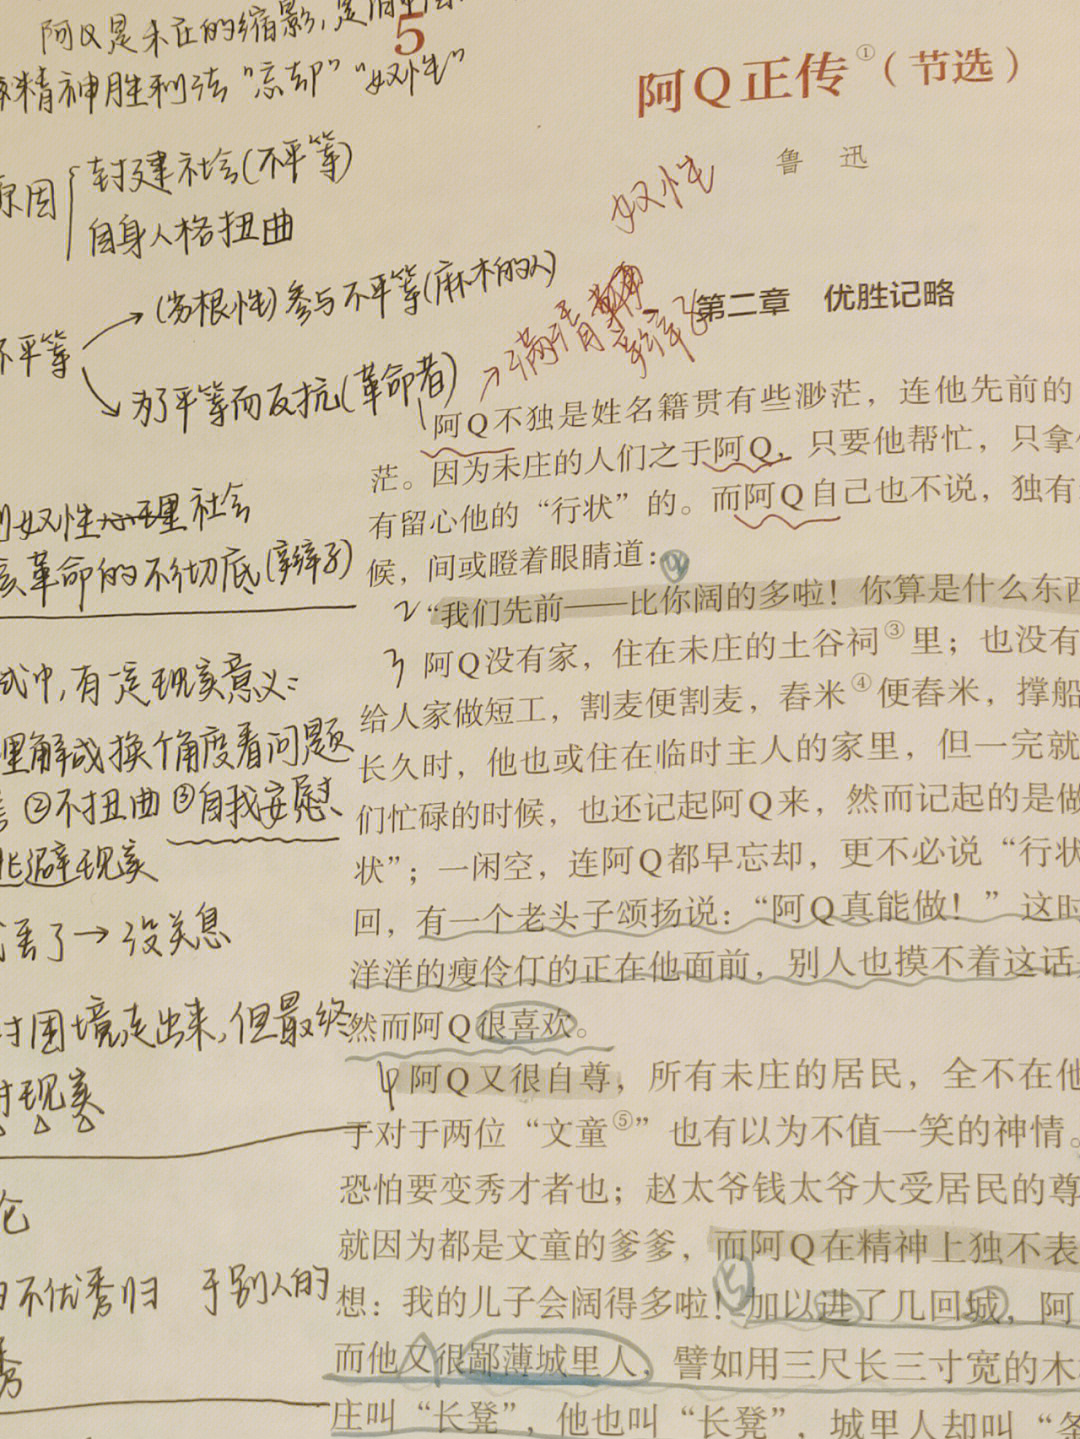 阿Q是未庄的缩影,是旧
精神胜利法“忘却”“奴性”
原因
封建社会(不平等)
自身人格扭曲
不平等
(劣根性)参与不平等(麻木的人)
为了平等而反抗(革命者)
奴性心理社会
革命的不彻底(辫子)
试中,有一定现实意义:
理解成换个角度看问题
②不扭曲③自我安慰
逃避现实
丢了→没关系
对困境走出来,但最终
对现实
论
不优秀归 于别人的
秀
5
阿Q正传①(节选)
鲁 迅
奴性
→满清
辫子
第二章 优胜记略
1 阿Q不独是姓名籍贯有些渺茫,连他先前的
茫。因为未庄的人们之于阿Q,只要他帮忙,只拿
有留心他的“行状”的。而阿Q自己也不说,独有
候,间或瞪着眼睛道:
2 “我们先前——比你阔的多啦!你算是什么东西
3 阿Q没有家,住在未庄的土谷祠③里;也没有
给人家做短工,割麦便割麦,舂米④便舂米,撑船
长久时,他也或住在临时主人的家里,但一完就
们忙碌的时候,也还记起阿Q来,然而记起的是做
状”;一闲空,连阿Q都早忘却,更不必说“行状
回,有一个老头子颂扬说:“阿Q真能做!”这时
洋洋的瘦伶仃的正在他面前,别人也摸不着这话
然而阿Q很喜欢。
4 阿Q又很自尊,所有未庄的居民,全不在他
于对于两位“文童⑤”也有以为不值一笑的神情。
恐怕要变秀才者也;赵太爷钱太爷大受居民的尊
就因为都是文童的爹爹,而阿Q在精神上独不表
想:我的儿子会阔得多啦!加以进了几回城,阿
而他又很鄙薄城里人,譬如用三尺长三寸宽的木
庄叫“长凳”,他也叫“长凳”,城里人却叫“条